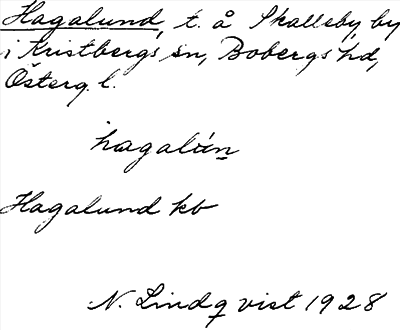 Hagalund, t. å Skalleby, by
i Kristbergs sn, Bobergs hd,
Österg. l.
hagalún
Hagalund kb
N. Lindqvist 1928